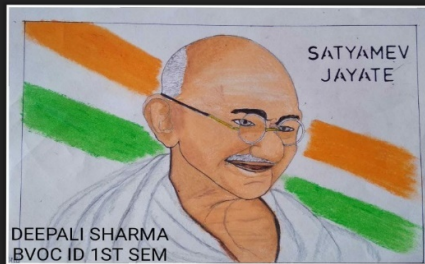 SATYAMEV
JAYATE
DEEPALI SHARMA
BVOC ID 1ST SEM